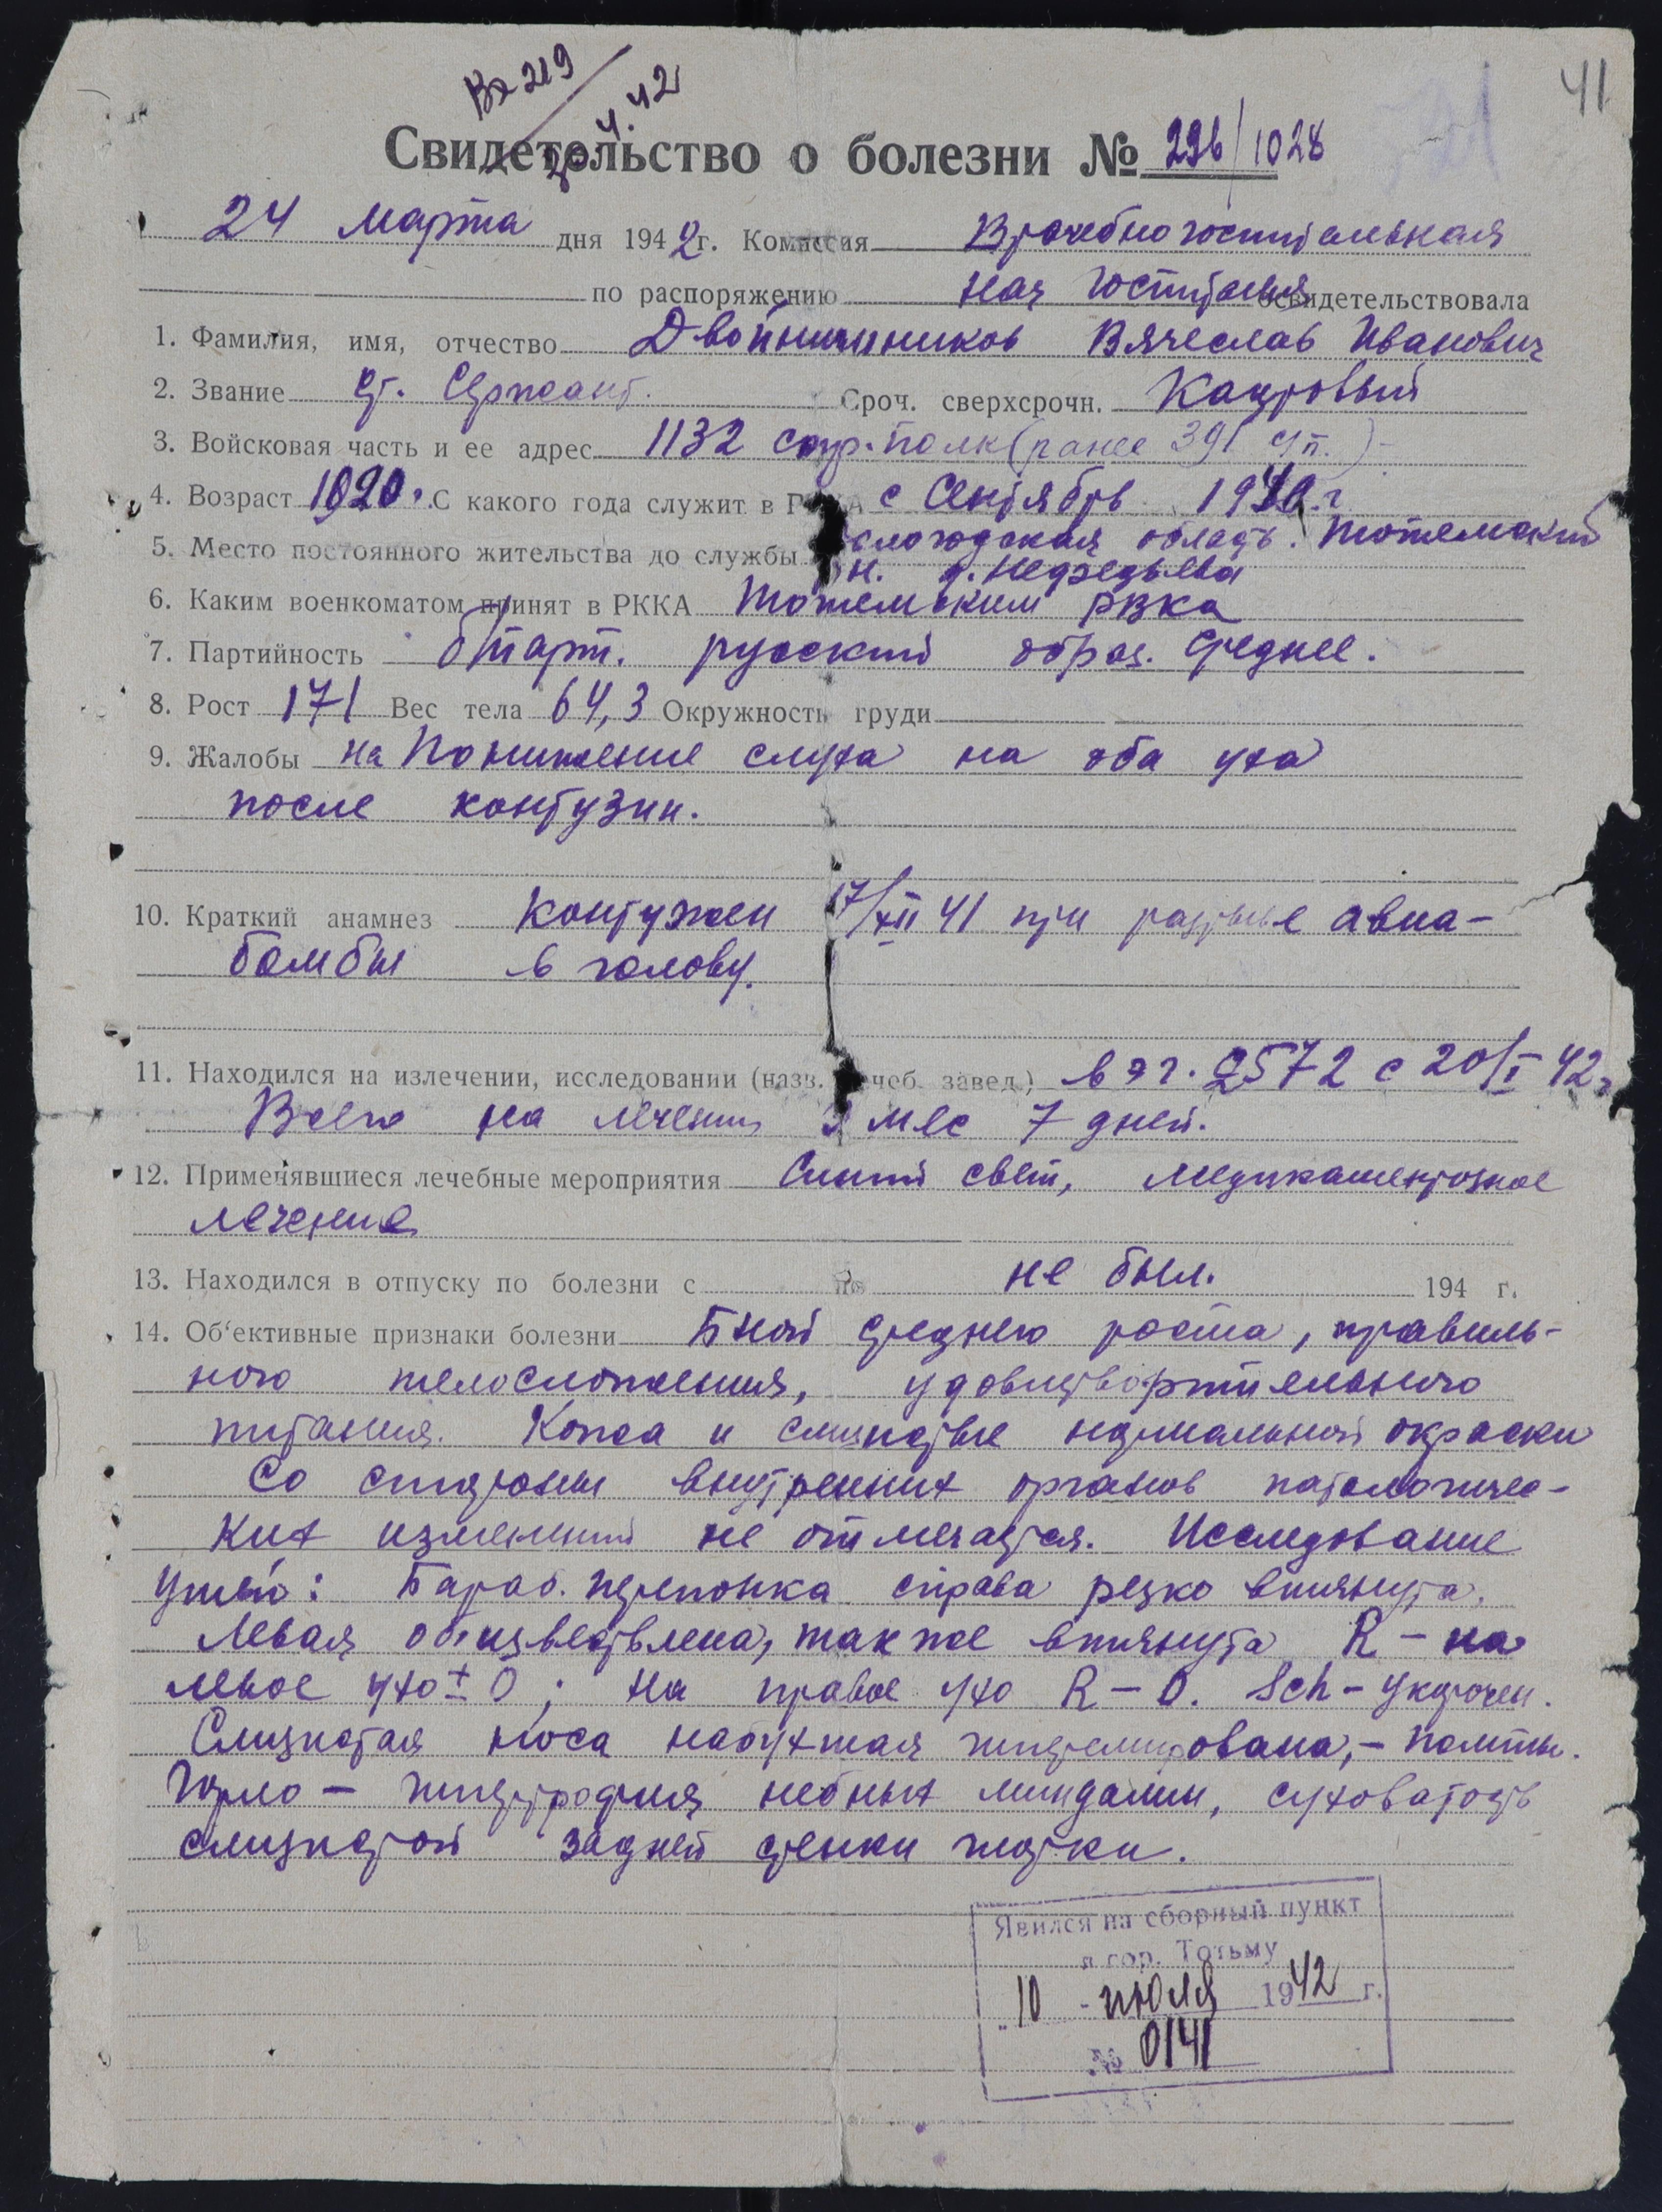 41
Вх 219
4.42
Свидетельство о болезни № 296/1028
24 марта дня 1942г. Комиссия Врачебно госпитальная
по распоряжению нач госпиталя освидетельствовала
1. Фамилия, имя, отчество Двойнишников Вячеслав Иванович
2. Звание Ст. Сержант. Сроч. сверхсрочн. Кадровый
3. Войсковая часть и ее адрес 1132 стр. полк (ранее 391 сп.)
4. Возраст 1920. С какого года служит в РККА с Сентября 1940 г
5. Место постоянного жительства до службы Вологодская область. Тотемский
рн. д.
6. Каким военкоматом принят в РККА Тотемским РВКа
7. Партийность б/парт. русский образ. среднее.
8. Рост 171 Вес тела 64,3 Окружность груди
9. Жалобы на Понижение слуха на оба уха
после контузии.
10. Краткий анамнез Контужен 17/XII 41 при разрыве авиа-
бомбы в голову.
11. Находился на излечении, исследовании (назв. лечеб. завед.) в эг. 2572 с 20/I 42г
Всего на лечении 3 мес 7 дней.
12. Применявшиеся лечебные мероприятия Синий свет, медикаментозное
лечение
13. Находился в отпуску по болезни с по не был. 194 г.
14. Об'ективные признаки болезни Бной среднего роста, правиль-
ного телосложения, удовлетворительного
питания. Кожа и слизистые нормальной окраски
Со стороны внутренних органов патологичес-
ких изменений не отмечается. Исследование
ушей: Бараб. перепонка справа резко втянута.
Левая обызвествлена, также втянута R – на
левое ухо ± 0; на правое ухо R – 0. Sch – Укорочен.
Слизистая носа набухшая гиперемирована, –
Горло – гипертрофия небных миндалин, суховатость
слизистой задней стенки глотки.
Явился на сборный пункт
в гор. Тотьму
10 - июля 1942 г.
№ 0141